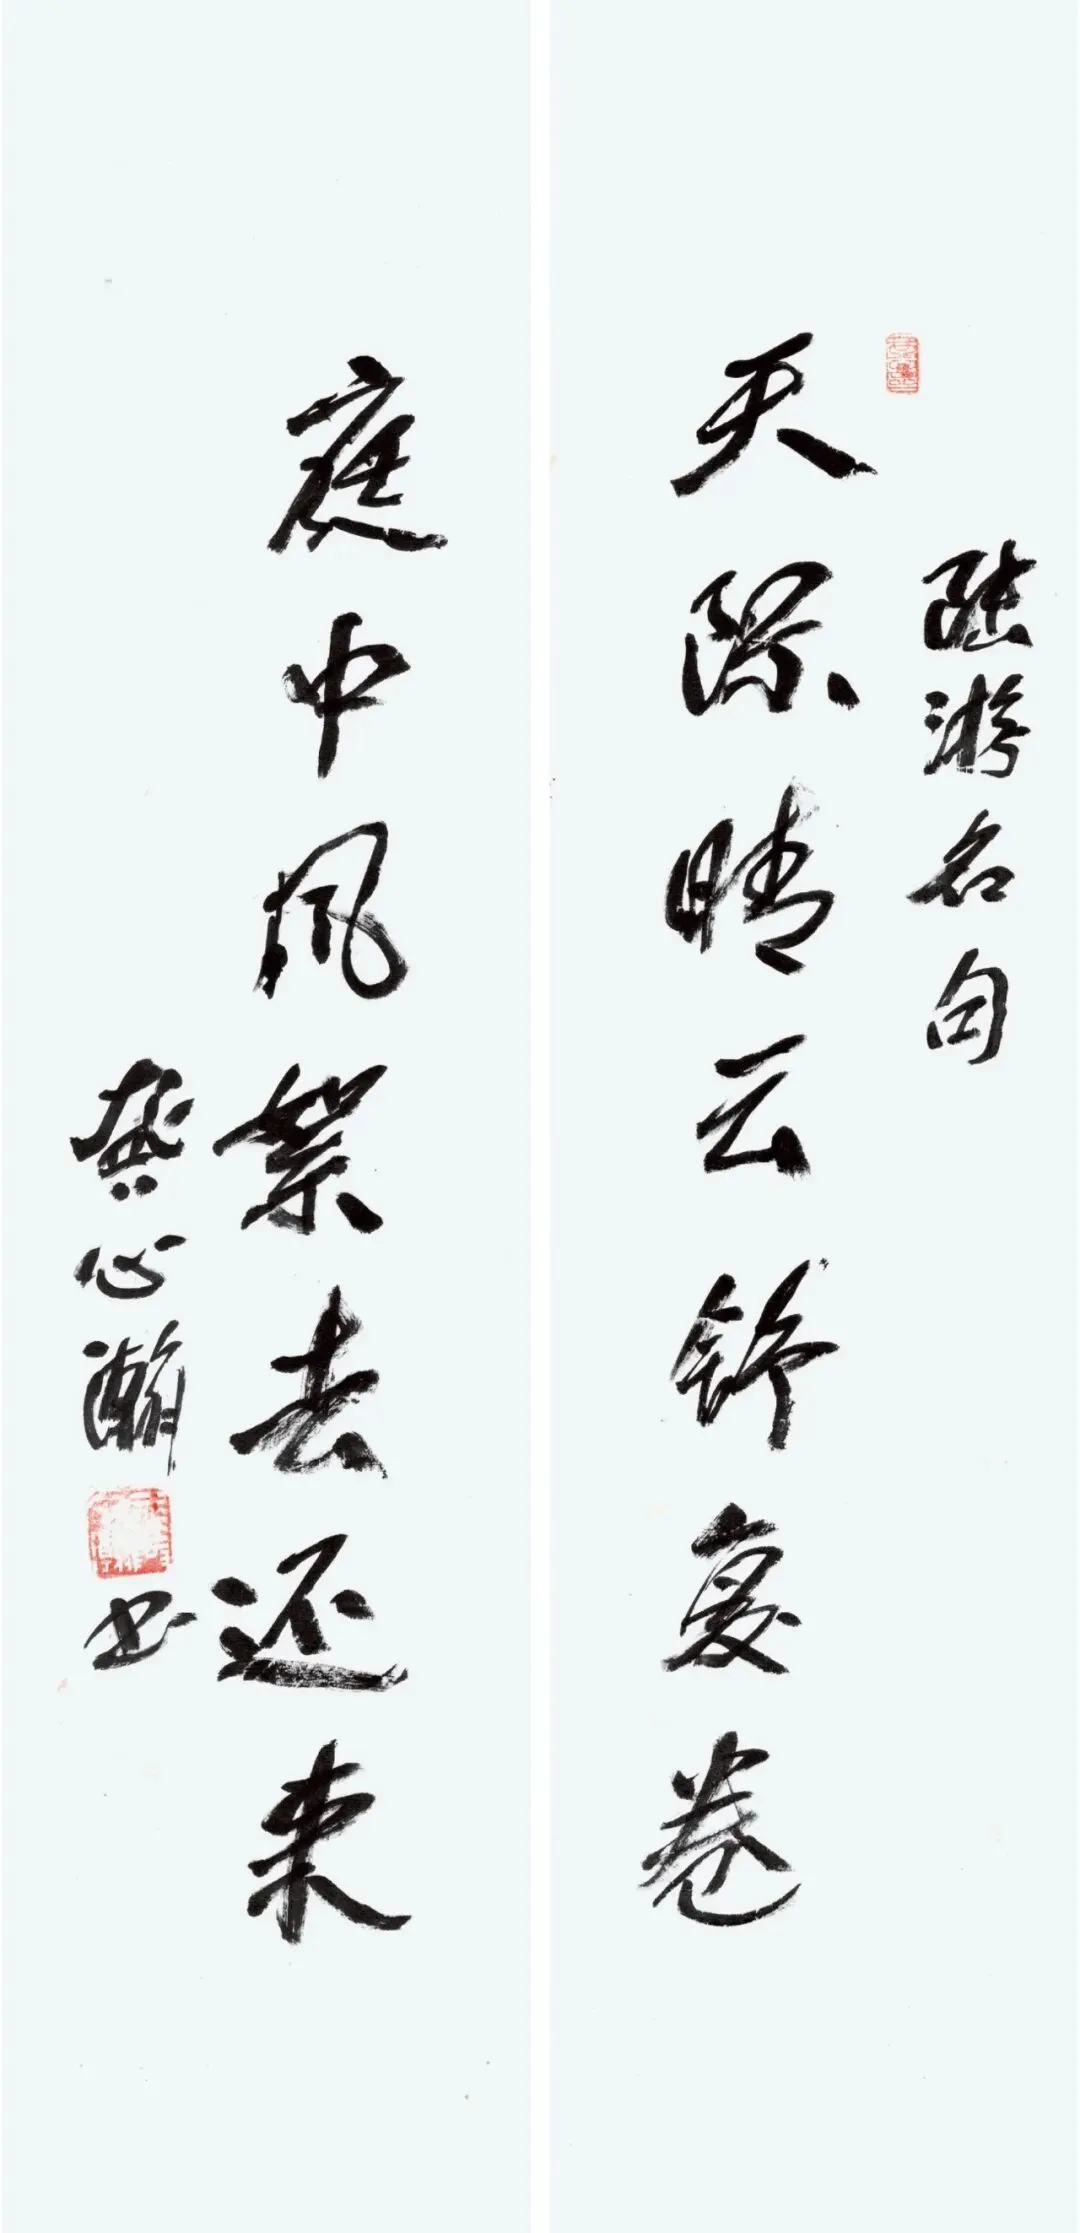 陆游名句
天际晴云舒复卷
庭中风絮去还来
龚心瀚
书